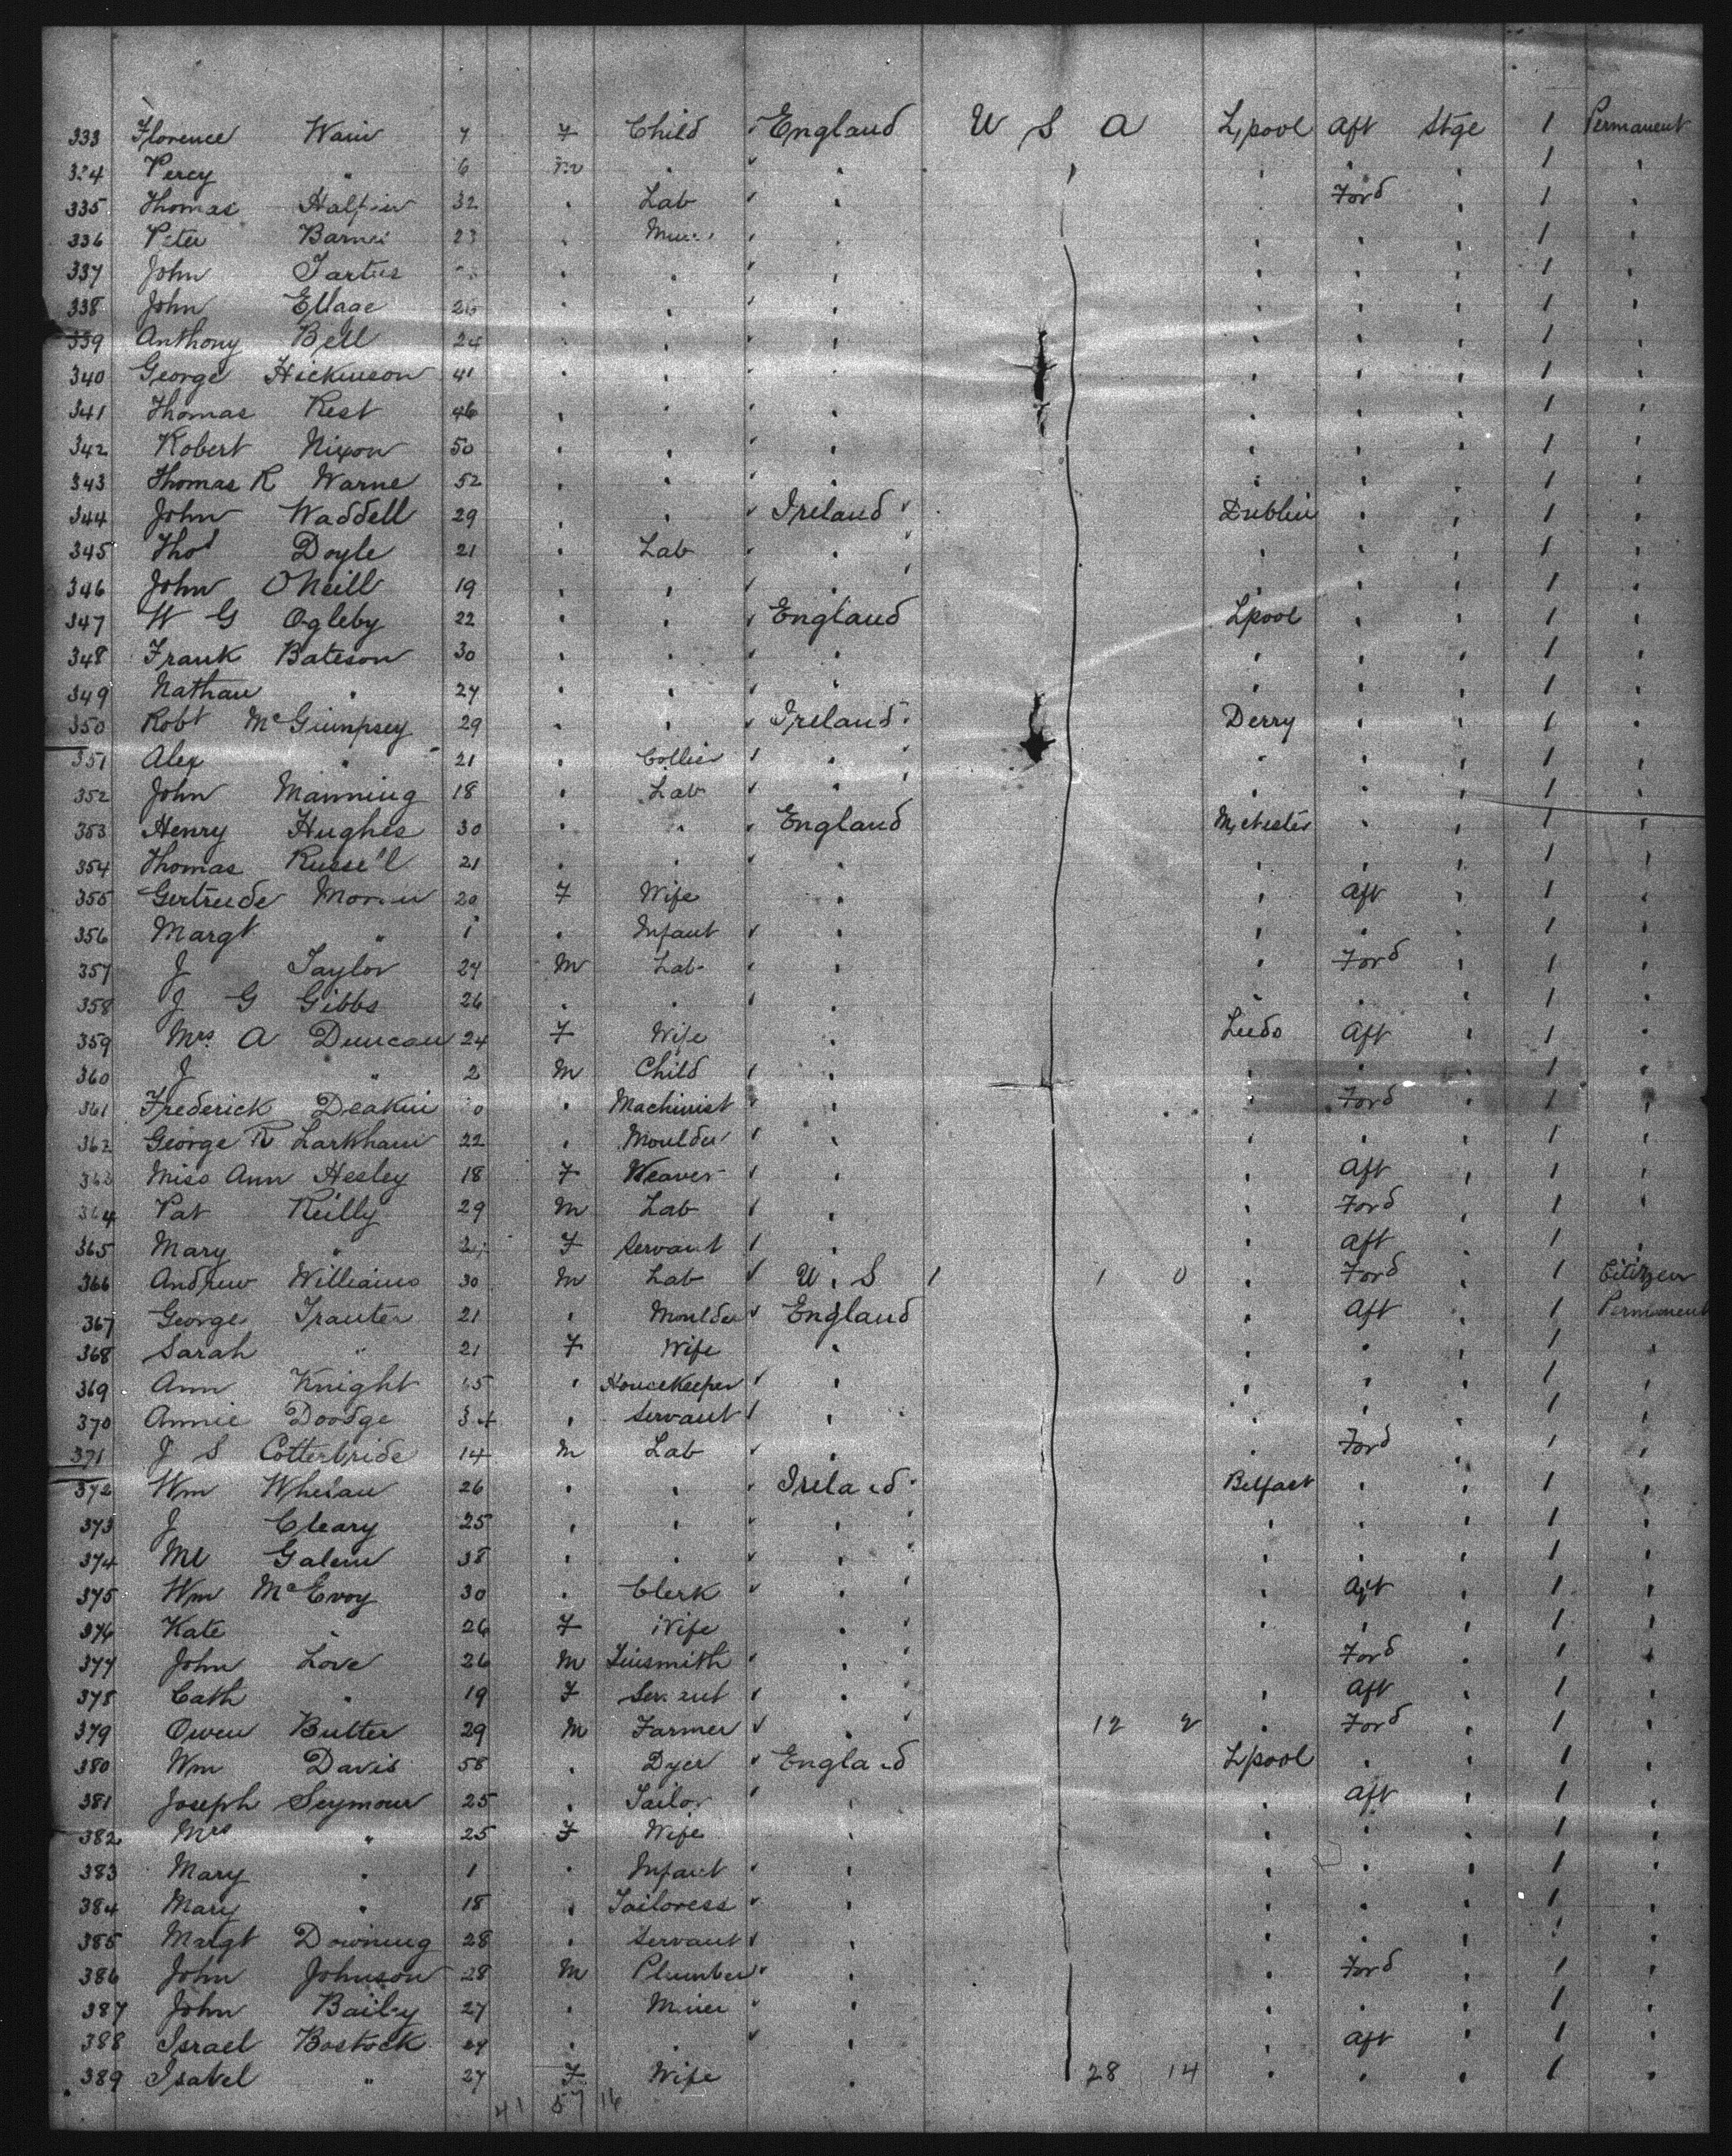 333 Florence Wain 7 F Child England U S A L,pool Aft Stge 1 Permanent
334 Percy " 6 m " " " " " 1 "
335 Thomas Halpin 32 " Lab " " Ford " 1 "
336 Peter Barnes 23 " " " " " 1 "
337 John " " " " " " 1 "
338 John Ellage " " " " " " 1 "
339 Anthony Bell 24 " " " " " " 1 "
340 George Hickinson 41 " " " " " " 1 "
341 Thomas Rest 46 " " " " " " 1 "
342 Robert Nixon 50 " " " " " " 1 "
343 Thomas R Warne 52 " " " " " " 1 "
344 John Waddell 29 " " Ireland Dublin " " 1 "
345 Thos Doyle 21 " Lab " " " " 1 "
346 John O'Neill 19 " " " " " " 1 "
347 W G Ogleby 22 " " England Lpool " " 1 "
348 Frank Bateson 30 " " " " " " 1 "
349 Nathan " 27 " " " " " " 1 "
350 Robt McGimpsey 29 " " Ireland Derry " " 1 "
351 Alex " 21 " Collier " " " " 1 "
352 John Manning 18 " Lab " " " " 1 "
353 Henry Hughes 30 " " England M,chester " " 1 "
354 Thomas Russell 21 " " " " " " 1 "
355 Gertrude 20 F Wife " " Aft " 1 "
356 Margt " 1 " Infant " " " " 1 "
357 J Taylor 24 M Lab " " Ford " 1 "
358 J G Gibbs 26 " " " " " " 1 "
359 Mrs A Duncan 24 F Wife " Leeds Aft " 1 "
360 J " 2 M Child " " " " 1 "
361 Frederick Deakin " Machinist " " Ford " 1 "
362 George R Larkham 22 " Moulder " " " " 1 "
363 Miss Ann Hesley 18 F Weaver " " Aft " 1 "
364 Pat Reilly 29 M Lab " " Ford " 1 "
365 Mary " F Servant " " Aft " 1 "
366 Andrew Williams 30 M Lab U. S 1 1 0 " Ford " 1 Citizen
367 George Tranter 21 " Moulder England " Aft " 1 Permanent
368 Sarah " 21 F Wife " " " " 1 "
369 Ann Knight " Housekeeper " " " " 1 "
370 Annie Doodge 34 " Servant " " " " 1 "
371 J S Cotterbride 14 M Lab " " Ford " 1 "
372 Wm Whelan 26 " " Ireland Belfast " " 1 "
373 J Cleary 25 " " " " " " 1 "
374 Ml Galem 38 " " " " " " 1 "
375 Wm McEvoy 30 " Clerk " " Aft " 1 "
376 Kate " 26 F Wife " " " " 1 "
377 John Love 26 M Tinsmith " " Ford " 1 "
378 Cath " 19 F Servant " " Aft " 1 "
379 Owen Butter 29 M Farmer " 12 2 " Ford " 1 "
380 Wm Davis 58 " Dyer England Lpool " " 1 "
381 Joseph Seymour 25 " Tailor " " Aft " 1 "
382 Mrs " 25 F Wife " " " " 1 "
383 Mary " 1 " Infant " " " " 1 "
384 Mary " 18 " Tailoress " " " " 1 "
385 Margt Downing 28 " Servant " " " " 1 "
386 John Johnson 28 M Plumber " " Ford " 1 "
387 John Baily 27 " Miner " " " " 1 "
388 Israel Bostock 27 " " " " Aft " 1 "
389 Isabel " 27 F Wife " 28 14 " " " 1 "
41 57 16